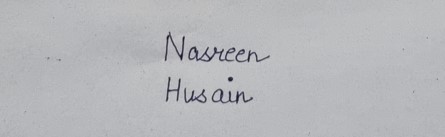 Nasreen
Husain